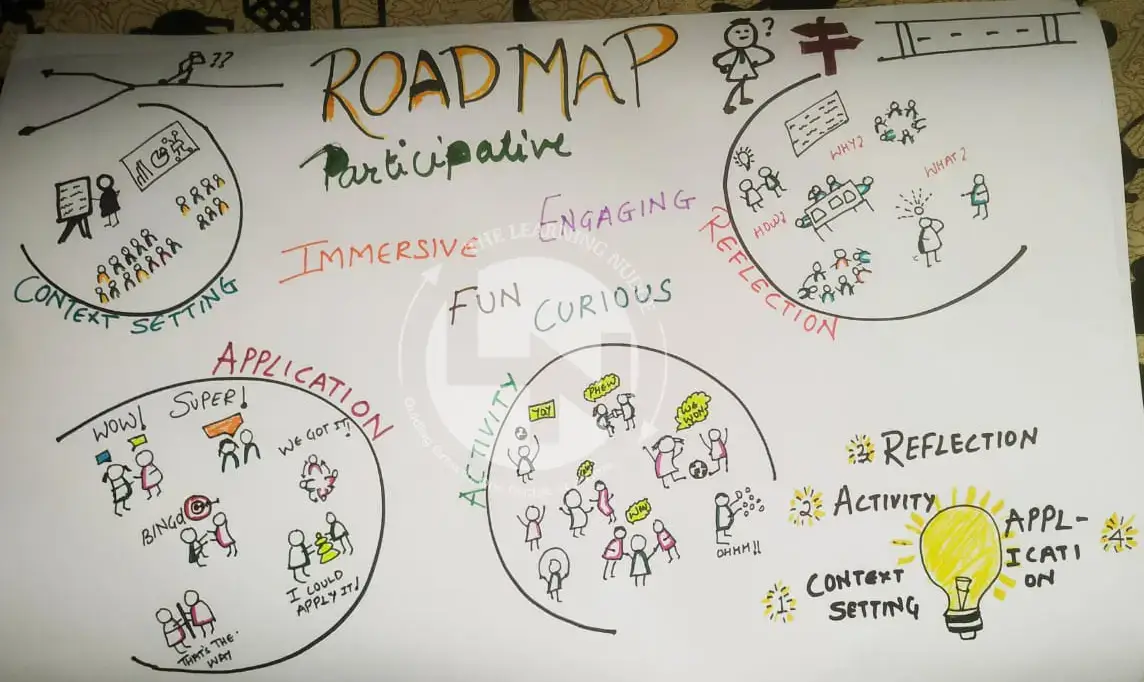 ??
ROADMAP
?
Participative
ENGAGING
IMMERSIVE
FUN
CURIOUS
THE LEARNING
CONTEXT SETTING
REFLECTION
WHY?
WHAT?
HOW?
APPLICATION
WOW!
SUPER!
WE GOT IT!
BINGO
I COULD
APPLY IT!
THAT'S THE
WAY
ACTIVITY
YAY
PHEW
WE
WON
OHHH!!
3 REFLECTION
2 ACTIVITY
1 CONTEXT
SETTING
APPL-
ICATI
ON
4